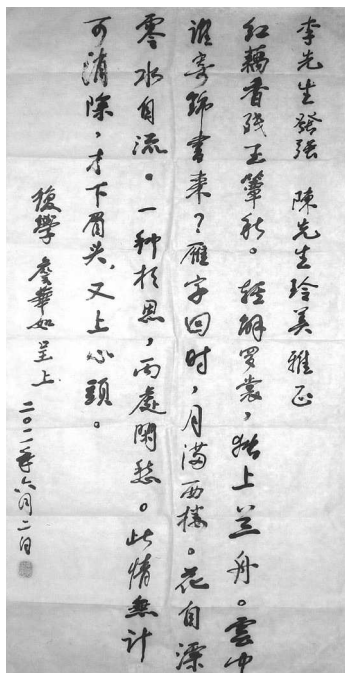 李先生發强 陳先生玲美 雅正
红藕香殘玉簟秋。轻解罗裳,独上兰舟。雲中
谁寄锦書来?雁字回时,月滿西楼。花自漂
零水自流。一种相思,两處閑愁。此情無計
可消除,才下眉头,又上心頭。
後學 詹華如 呈上
二〇二一年六月二日